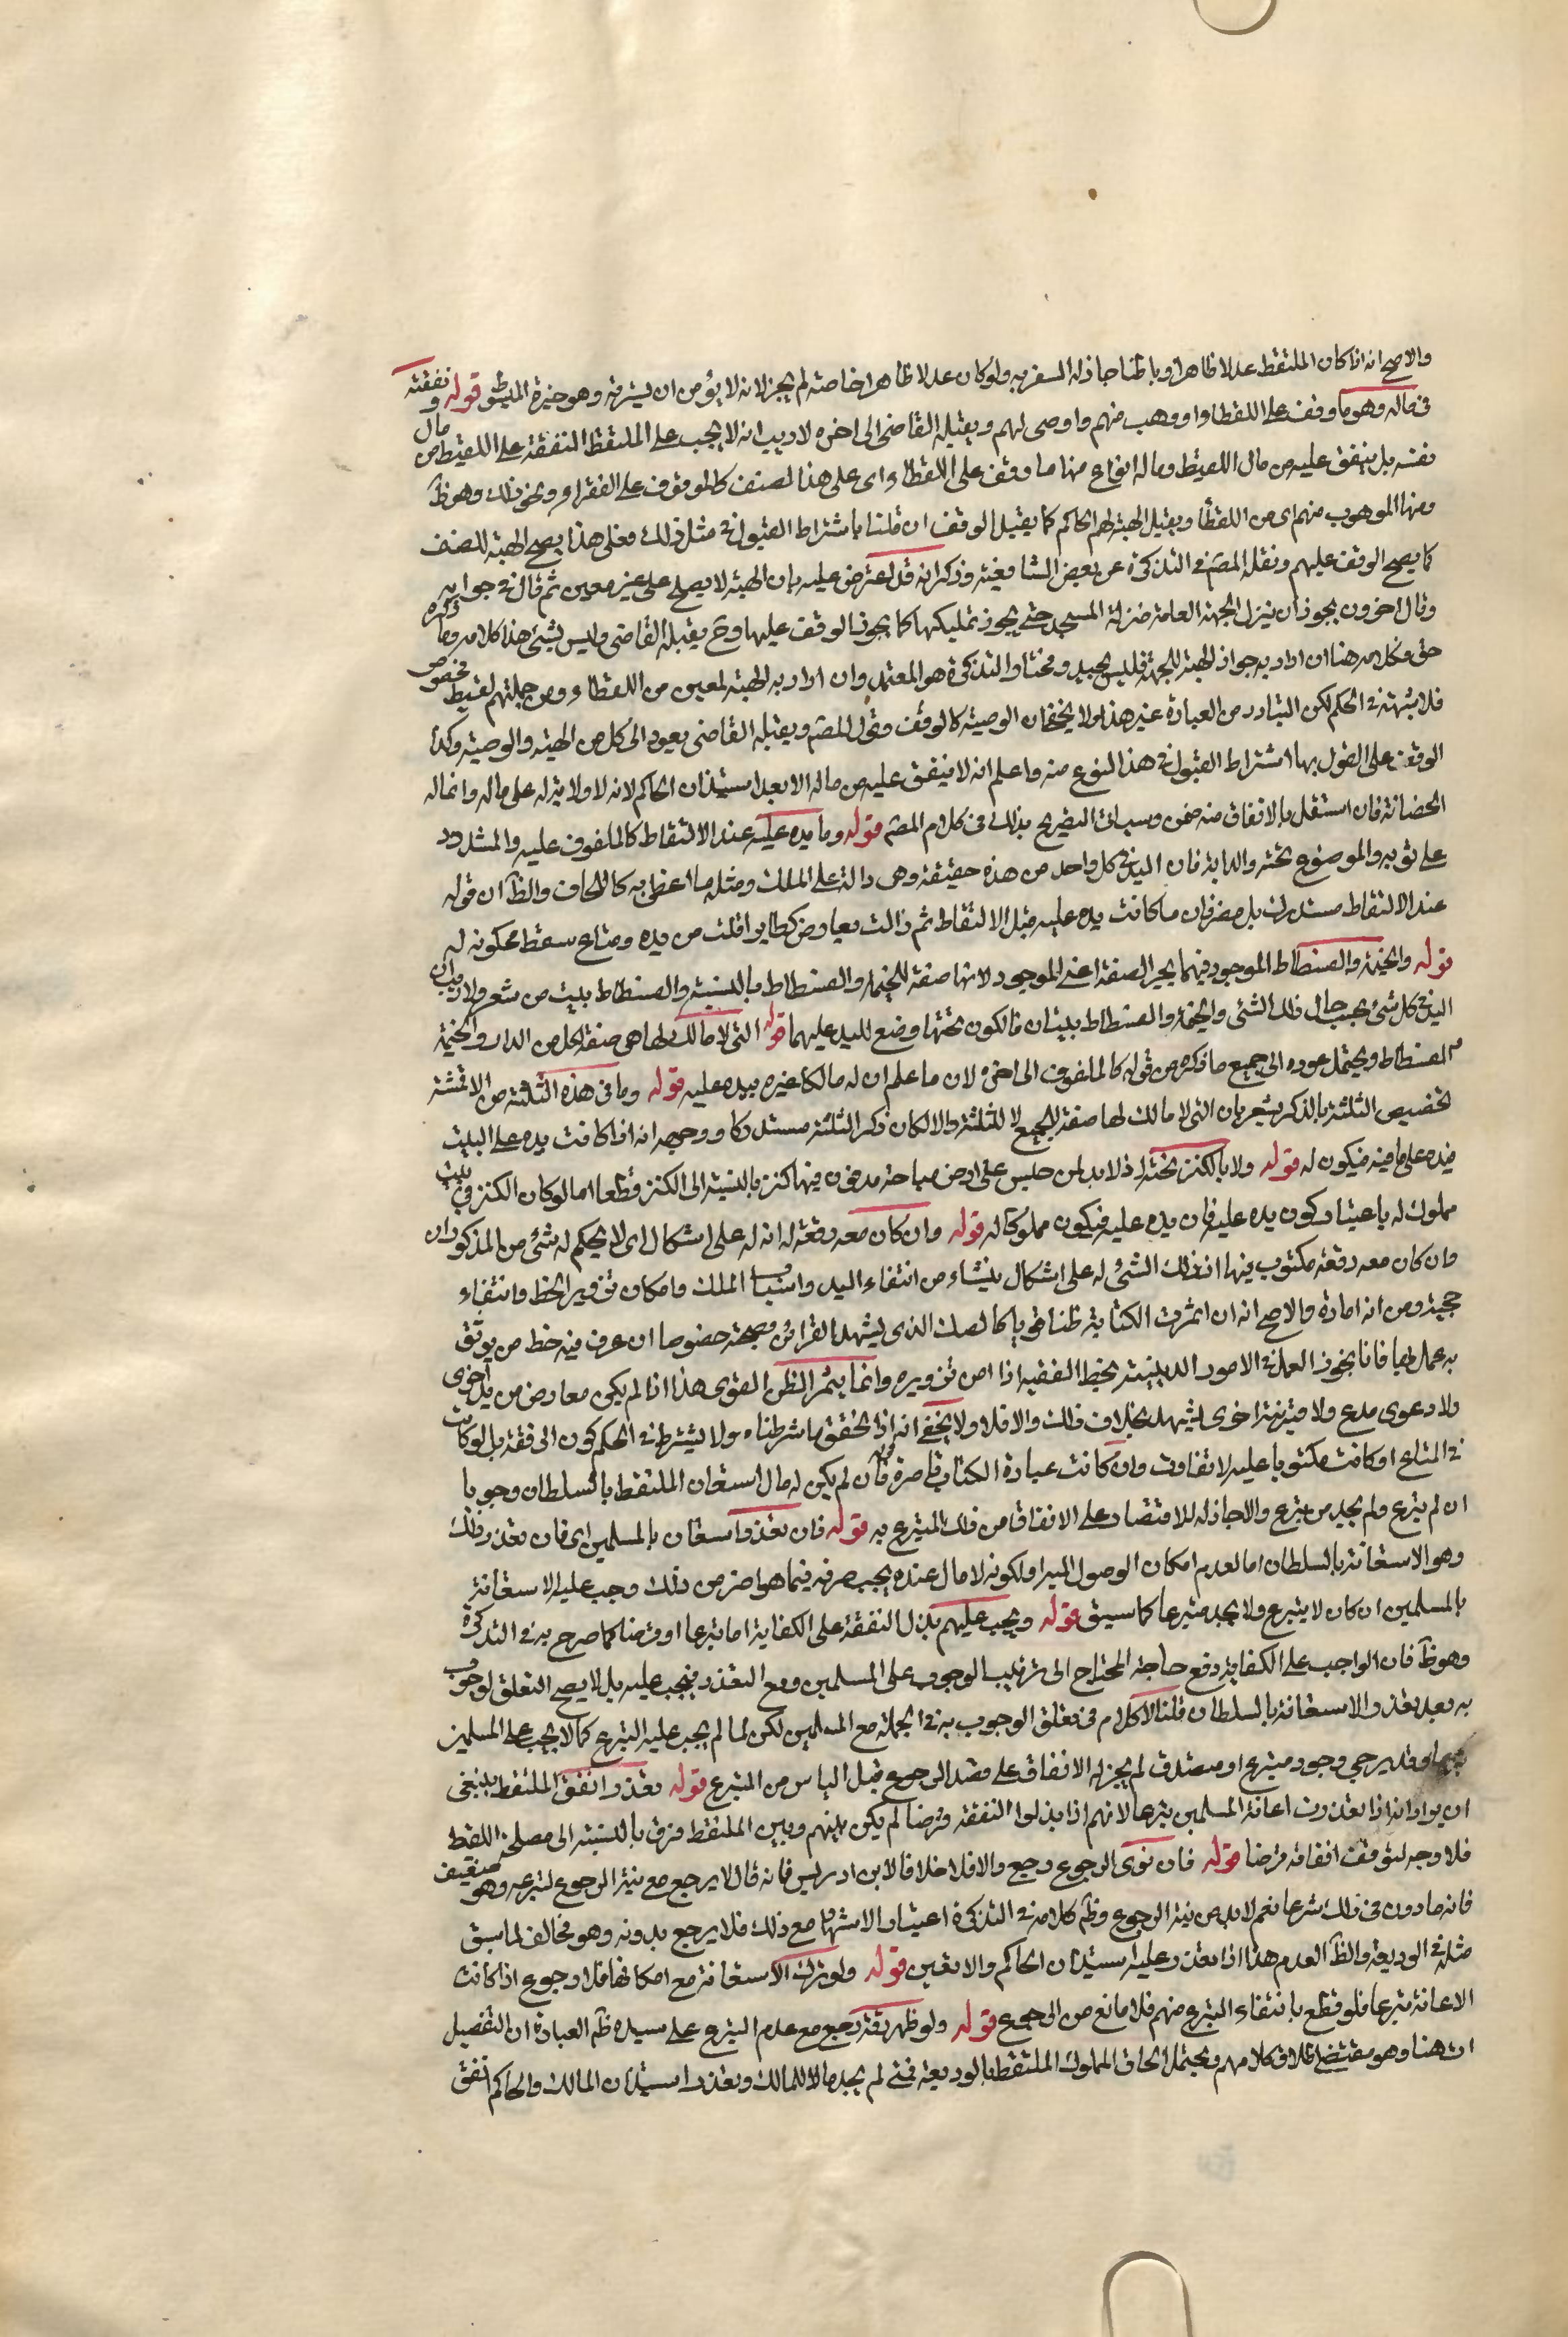 والاصح انه اذا كان الملتقط عدلا ظاهرا وباطنا جاز له السفر به ولو كان عدلا ظاهرا خاصة لم يجز لانه لا يؤمن ان يسترقه وهو خيرة قوله ونفقته
فى ماله وهو ما وقف على اللقطا او وهب منهم واوصى لهم ويقبله القاضى الى اخره لا ريب انه لا يجب على الملتقط النفقة على اللقيط من مال
نفسه بل ينفق عليه من مال اللقيط وماله انواع منها ما وقف على اللقطاء اى على هذا الصنف كالموقوف على الفقراء ونحو ذلك وهو ظ
ومنها الموهوب منهم اى من اللقطا ويقبل الهبة لهم الحاكم كما يقبل الوقف ان قلنا باشتراط القبول فى مثل ذلك فعلى هذا يصح الهبة للصنف
كما يصح الوقف عليهم ونقله المص فى التذكرة عن بعض الشافعية وذكر انه قد اعترض عليه بان الهبة لا يصح على غير معين ثم قال فى جوابه
وقال اخرون يجوز ان ينزل الجهة العامة منزلة المسجد حتى يجوز تمليكها كما يجوز الوقف عليها وح يقبله القاضى وليس بشئ هذا كلامه وما ذكره
حق فكلامه هنا ان اراد به جواز الهبة للجهة فليس بجيد ومختار التذكرة هو المعتمد وان اراد به الهبة لمعين من اللقطاء ومن جملتهم لقيط مخصوص
فلا شبهة فى الحكم لكن المتبادر من العبارة غير هذا ولا يخفى ان الوصية كالوقف وقول المص ويقبله القاضى يعود الى كل من الهبة والوصية وكذا
الوقف على القول بها اشتراط القبول فى هذا النوع منه واعلم انه لا ينفق عليه من ماله الا بعد استيذان الحاكم لانه لا ولاية له على ماله وانما له
الحضانة فان استقل بالانفاق منه ضمن وسياتى التصريح بذلك فى كلام المص قوله وما يده عليه عند الالتقاط كالملفوف عليه والمشدود
على ثوبه والموضوع تحته والدابة فان اليد فى كل واحد من هذه حقيقة وهى دالة على الملك ومثله ما اعطى به كاللحاف والظ ان قوله
عند الالتقاط مستدرك بل مضر فان ما كانت يده عليه قبل الالتقاط ثم زالت بعارض كطاير افلت من يده ومتاع سقط محكوم به له
قوله والخيمة والفسطاط الموجود فيهما بجر الصفة اعنى الموجود لانها صفة للخيمة والفسطاط بالنسبة والفسطاط بيت من شعر ولا ريب ان
اليد فى كل شئ بحسب حال ذلك الشئ والخيمة والفسطاط بيتان فالكون تحتها وضع لليد عليهما قوله التى لا مالك لها هى صفة لكل من الدار والخيمة
والفسطاط ويحتمل عوده الى جميع ما ذكره من قوله كالملفوف الى اخره لان ما علم ان له مالكا غيره بيده عليه قوله وما فى هذه الثلثة من الاقمشة
تخصيص الثلثة بالذكر يشعر بان التى لا مالك لها صفة للجميع لا للثلثة والا لكان ذكر الثلثة مستدركا ووجهه انه اذا كانت يده على البيت
فيده على ما فيه فيكون له قوله ولا بالكنز تحته اذ لا يد لمن جلس على ارض مباحة مدفون فيها كنز بالنسبة الى الكنز قطعا اما لو كان الكنز فى بيت
مملوك له باعتبار كون يده عليه فان يده عليه فيكون مملوكا له قوله وان كان معه رقعة له انه له على اشكال اى لا يحكم له بشئ من المذكورات
وان كان معه رقعة مكتوب فيها ان ذلك الشئ له على اشكال ينشاء من انتفاء اليد واسباب الملك وامكان تزوير الخط وانتفاء
حجيته ومن انه امارة والاصح انه ان اثمرت الكتابة ظنا قويا كالصك الذى يشهد القرائن بصحته خصوصا ان عرف فيه خط من يوثق
به عمل بها فانا نجوز العمل فى الامور الدينية بخط الفقيه اذا امن تزويره وانما يثمر الظن القوى هذا اذا لم يكن معارض من يد اخرى
ولا دعوى مدع ولا قرينة اخرى يشهد بخلاف ذلك والا فلا ولا يخفى انه اذا تحقق ما شرطناه ولا يشترط فى الحكم كون الرقعة بل لو كانت
فى المتاع او كانت مكتوبا عليه لا تفاوت وان كانت عبارة الكتاب قاصرة قوله فان لم يكن له مال استعان الملتقط بالسلطان وجوبا
ان لم يتبرع ولم يجد من يتبرع والا جاز له الاقتصار على الانفاق من ذلك المتبرع به قوله فان تعذر استعان بالمسلمين اى فان تعذر ذلك
وهو الاستعانة بالسلطان اما لعدم امكان الوصول اليه او لكونه لا مال عنده يجب صرفه فيما هو اضر من ذلك وجب عليه الاستعانة
بالمسلمين ان كان لا يتبرع ولا يجد متبرعا كما سبق قوله ويجب عليهم بذل النفقة على الكفاية اما تبرعا او قرضا كما صرح به فى التذكرة
وهو ظ فان الواجب على الكفاية دفع حاجة المحتاج الى ترتيب الوجوب على المسلمين ومع التعذر فيجب عليه بل لا يصح التعلق لوجوب
به بعد تعذر الاستعانة بالسلطان قلنا لا كلام فى تعلق الوجوب به فى الجملة مع المسلمين لكن لما لم يجب عليه التبرع كما لا يجب على المسلمين
وقد يرجى وجود متبرع او متصدق لم يجز له الانفاق على قصد الرجوع قبل الياس من المتبرع قوله تعذر انفق الملتقط ينبغى
ان يراد انه اذا تعذرت اعانة المسلمين تبرعا لانهم اذا بذلوا النفقة قرضا لم يكن بينهم وبين الملتقط فرق بالنسبة الى مصلحة اللقط
فلا وجه لتوقف انفاقه قرضا قوله فان نوى الرجوع رجع والا فلا خلافا لابن ادريس فانه قال لا يرجع مع نية الرجوع لتبرعه وهو ضعيف
فانه ماذون فى ذلك شرعا نعم لا بد من نية الرجوع وظ كلامه فى التذكرة اعتبار الاشهاد مع ذلك فلا يرجع بدونه وهو مخالف لما سبق
مثله فى الوديعة والظ العدم هذا اذا تعذر عليه استيذان الحاكم والا تعين قوله ولو ترك الاستعانة مع امكانها فلا رجوع اذا كانت
الاعانة تبرعا فلو قطع بانتفاء التبرع منهم فلا مانع من الرجوع قوله ولو ظهر رقه رجع مع عدم التبرع على سيده ظ العبارة ان التفصيل
ات هنا وهو مقتضى اطلاق كلامهم ويحتمل الحاق المملوك الملتقط بالوديعة فمتى لم يجد مالا للمالك وتعذر استيذان المالك والحاكم انفق